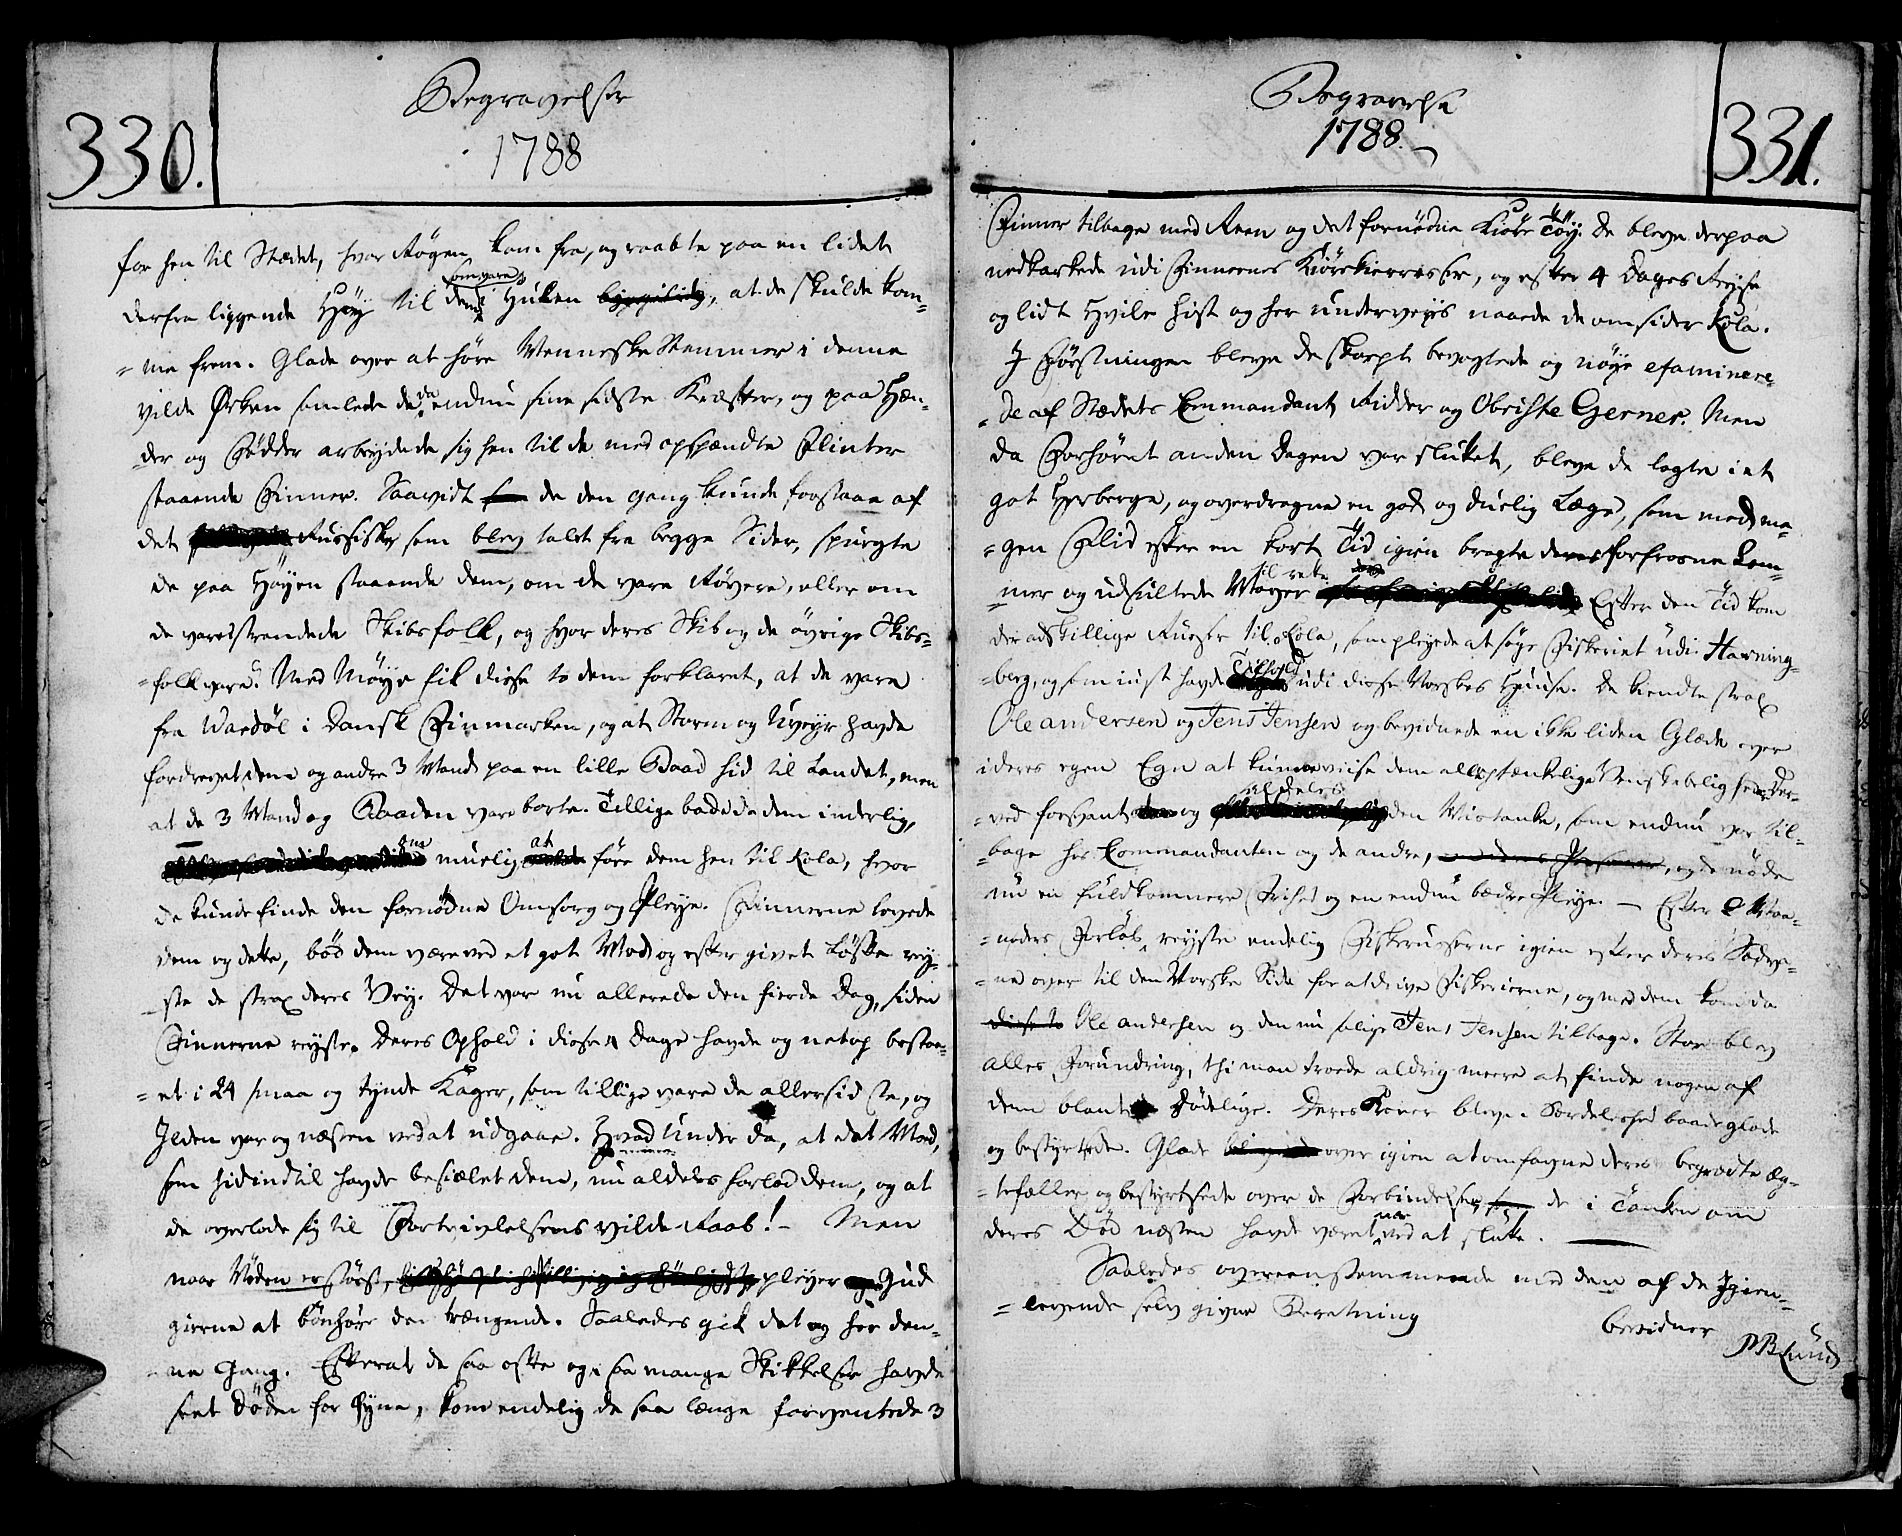 330.
Begravelser
1788
for hen til Stædet, hvor Røgen kom fra, og raabte paa en lidet
om vare i
derfra liggende Høy til dem Hulen, at de skulde kom-
-me frem. Glade over at høre Menneske Stemmer i denne
vilde Ørken samlede de da endnu sine sidste Kræfter, og paa Hæn-
der og Fødder arbeydede sig hen til de med opspændte Flinter
staaende Finner. Saavidt de den gang kunde forstaae af
det Russiske som blev talt fra begge Sider, spurgte
de paa Høyen staaende dem, om de vare Røvere, eller om
de vare strandede Skibsfolk, og hvor deres Skib og de øvrige Skibs-
-folk vare? Med Møye fik disse to dem forklaret, at de vare
fra Wardøe i Dansk Finmarken, og at Storm og Uveyr havde
fordrevet dem og andre 3 Mand paa en lille Baad hid til Landet, men
at de 3 Mand og Baaden vare borte. Tillige bade de dem inderlig,
om muelig at føre dem hen til Kola, hvor
de kunde finde den fornødne Omsorg og Pleye. Finnerne lovede
dem og dette, bød dem være ved et got Mod og efter givet Løfte rey-
ste de strax deres Vey. Det var nu allerede den fierde Dag, siden
Finnerne reyste. Deres Ophold i disse 4 Dage havde og netop bestaa-
-et i 24 smaa og tynde Kager, som tillige vare de allersidste, og
Ilden var og næsten ved at udgaae. Hvad Under da, at det Mod,
som hidindtil havde besiælet dem, nu aldeles forlod dem, og at
de overlode sig til Fortvivlelsens vilde Raab! - Men
naar Nøden er størst, pleyer Gud
gierne at bønhøre den trængende. Saaledes gik det og her den-
-ne Gang. Efterat de saa ofte og i saa mange Skikkelser havde
seet Døden for Øyne, kom endelig de saa længe forventede 3
331.
Begravelse
1788.
Finner tilbage med Reen og det fornødne Kiøre Tøy. De bleve derpaa
nedpakkede udi Finnernes Kiørekierresser, og efter 4 Dages Reyse
og lidt Hvile hist og her underveys naaede de omsider Kola.
I Førstningen bleve de skarpt bevogtede og nøye examinere-
-de af Stædets Commandant Ridder og Obriste Gerner. Men
da Forhøret anden Dagen var sluttet, bleve de lagte i et
got Herberge, og overdragne en god og duelig Læge, som med me-
-gen Flid efter en kort Tid igien bragte deres forfrosne Lem-
til rette
-mer og udsultede Maver Efter den Tid kom
der adskillige Russer til Kola, som pleyede at søge Fiskeriet udi Havning-
-berg, og som iust havde Tilhold udi disse Norskes Huuse. De kiendte strax
Ole Andersen og Jens Jensen og bevidnede en ikke liden Glæde over
i deres egen Egn at kunne viise dem all optænkelige Menskebelighed. Der-
aldeles
-ved forsvant og den Mistanke, som endnu var til-
-bage hos Commandanten og de andre, og de nøde
nu en fuldkomnere Frihed og en endnu bedre Pleye. — Efter 2 Maa-
-neders Forløb reyste endelig Fiskerusserne igien efter deres Sædva-
-ne over til den Norske Side for at drive Fiskerierne, og med dem kom da
disse to Ole Andersen og den nu salige Jens Jensen tilbage. Stor blev
alles Forundring, thi man troede aldrig meere at finde nogen af
dem blant Dødelige. Deres Koner bleve i Særdeleshed baade glade
og bestyrtsede. Glade over igien at omfavne deres begrædte Æg-
-tefæller, og bestyrtsede over de Forbindelser, de i Tanken om
nær
deres Død næsten havde været ved at slutte. —
Saaledes overeensstemmende med den af de Igien-
-levende selv givne Beretning
bevidner
PBLund